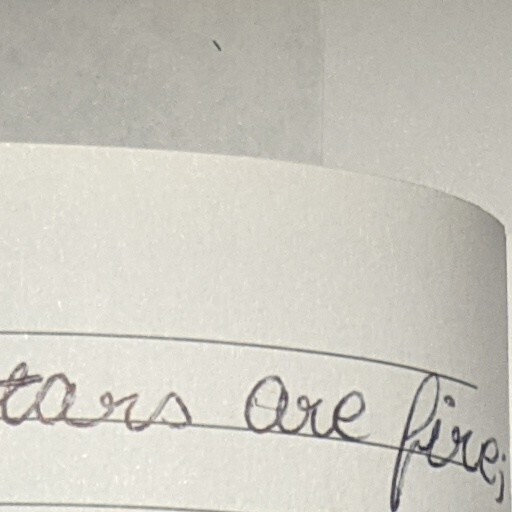 tars are fire;